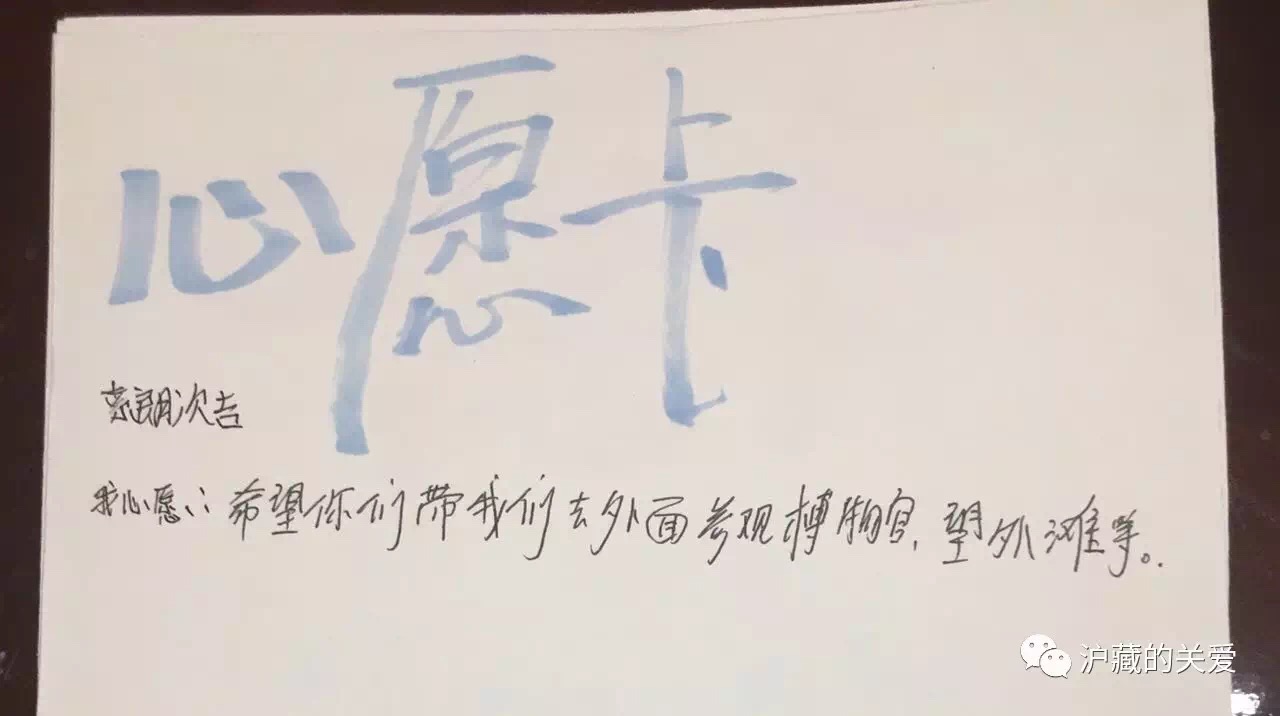 心愿卡
索朗次吉
我心愿:希望你们带我们去外面参观博物官,望外滩等。
沪藏的关爱